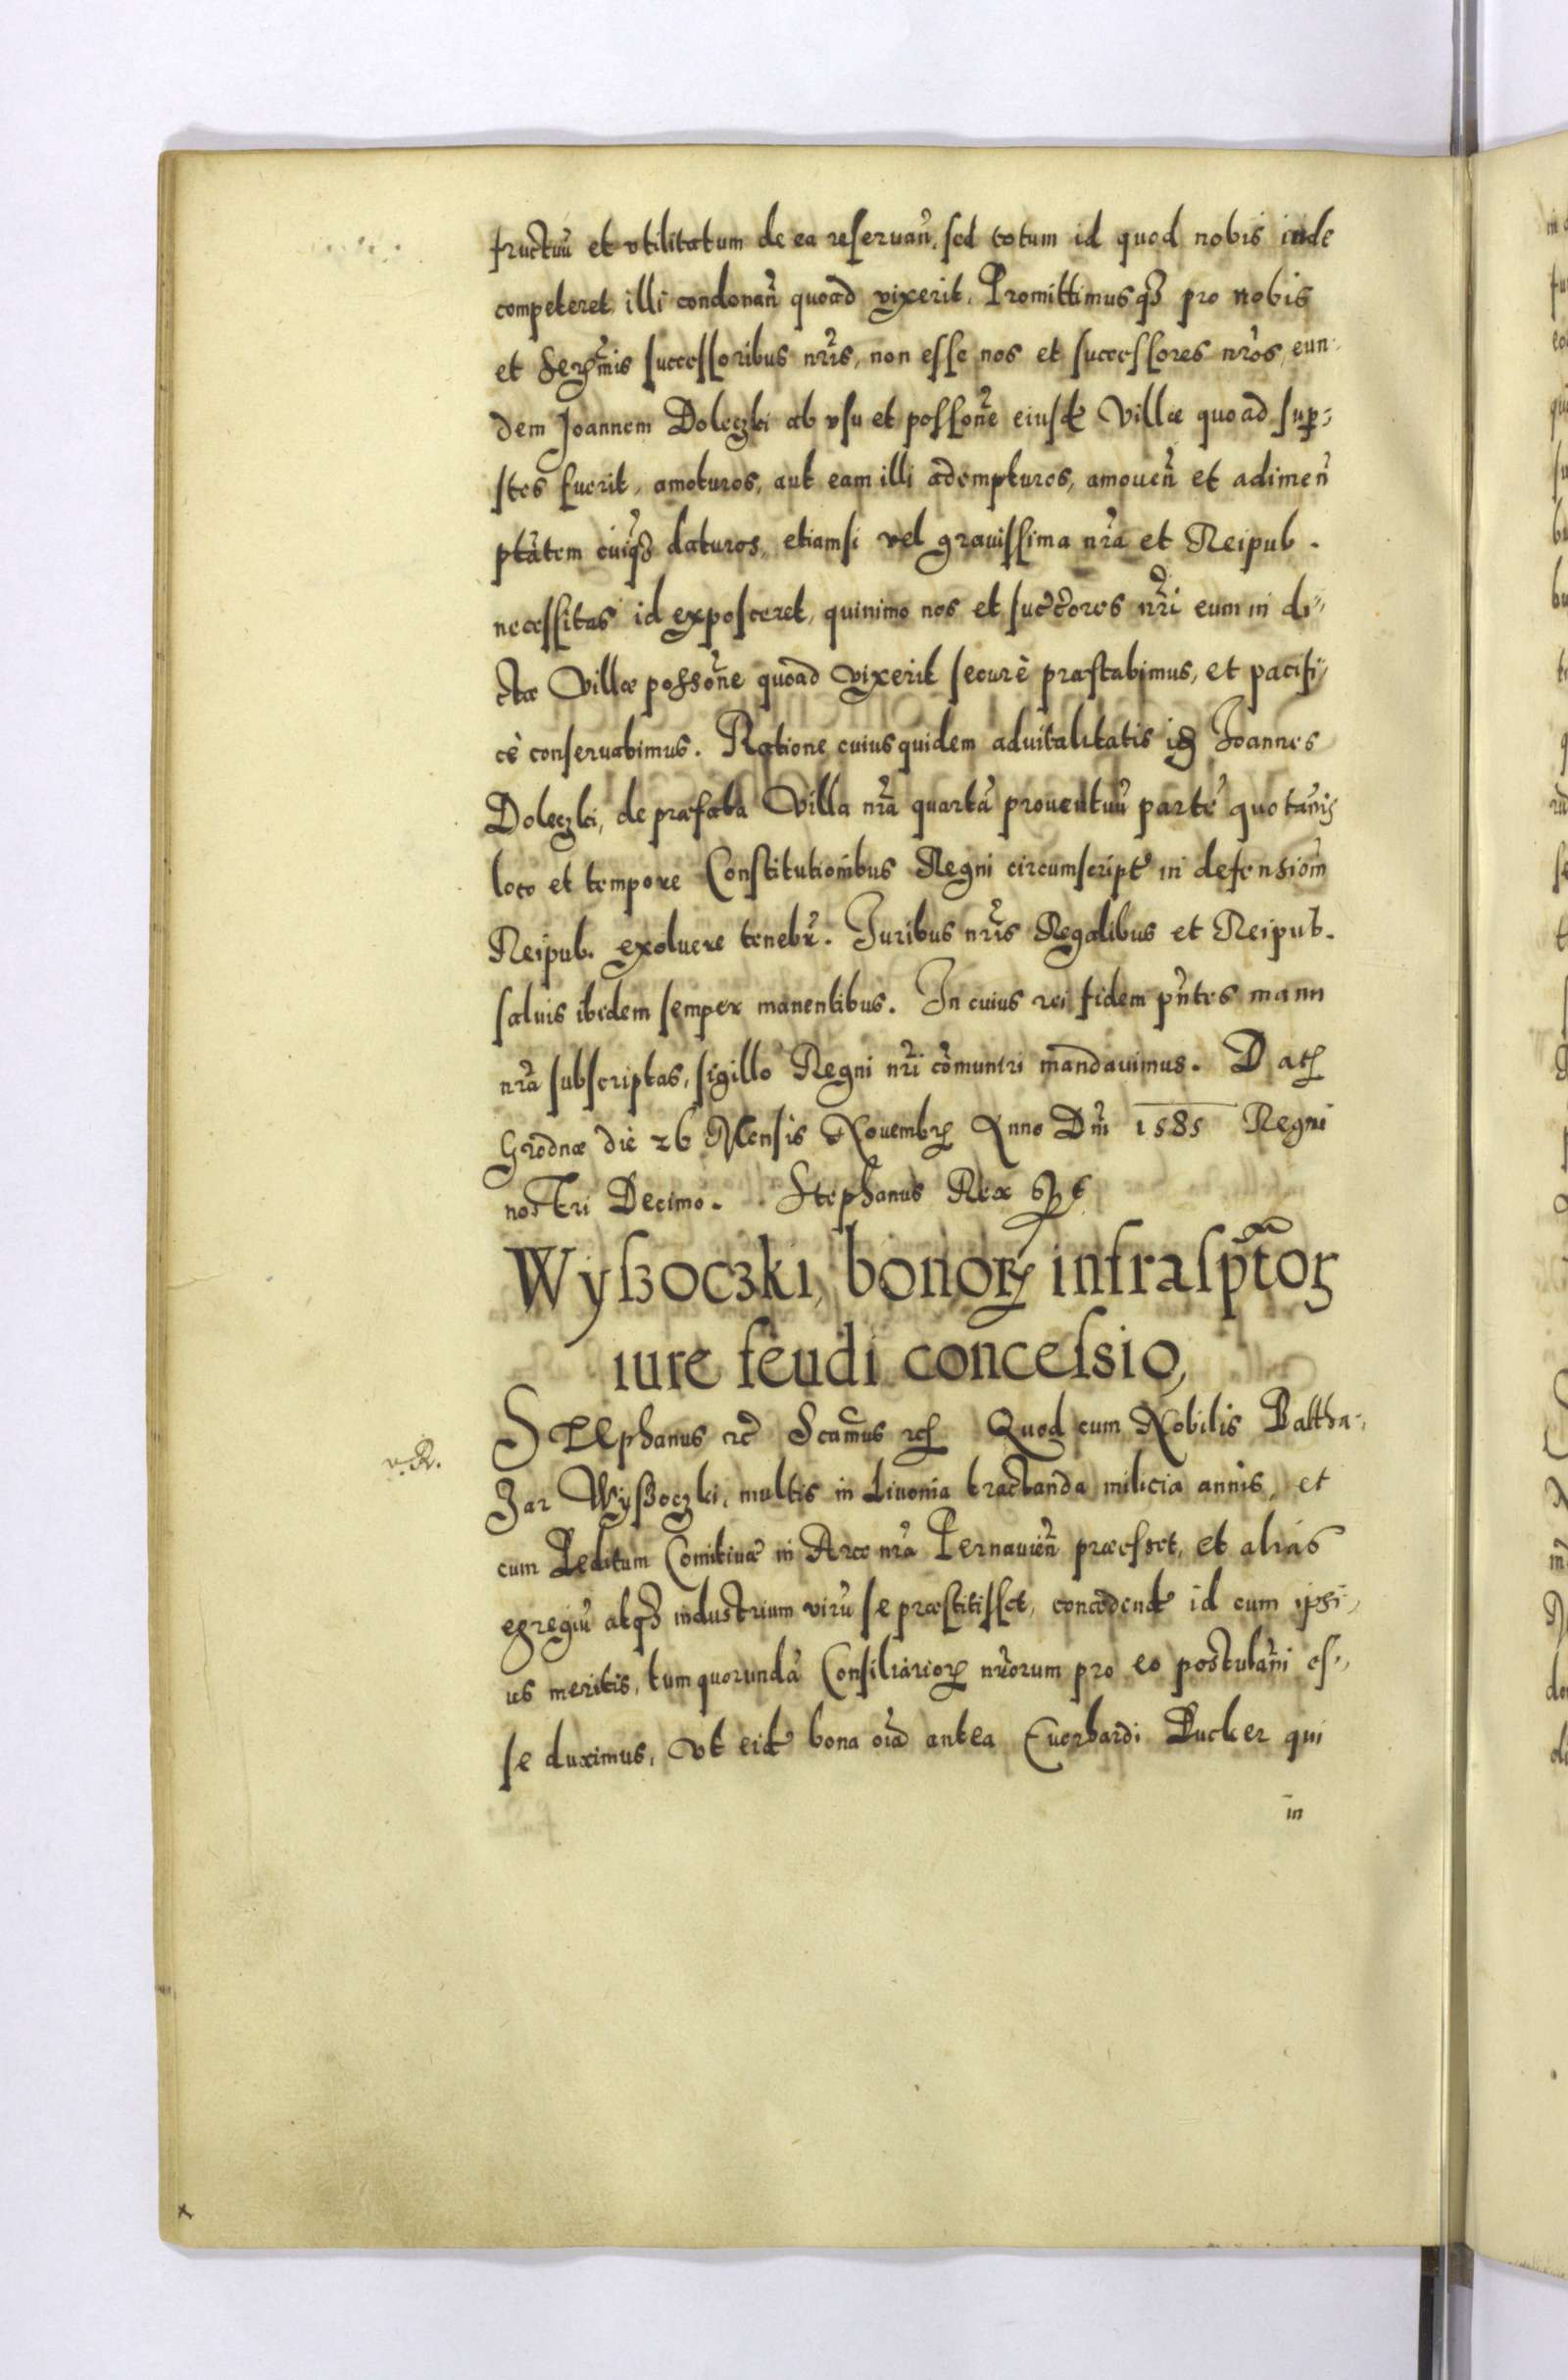 fructuũ et vtilitatum de ea reseruañ, sed totum id quod nobis inde
competeret, illi condonañ quoad vixerit. Promittimusqȝ pro nobis
et Serꝫmis successoribus nr̃is, non esse nos et successores nr̃os, eun-
dem Joannem Doleczki ab vsu et possoñe eiusd̃ Villæ quoad suꝑ-
stes fuerit, amoturos, aut eam illi adempturos, amouen̄ et adimen̄
ptãtem cuiqȝ daturos, etiamsi vel grauissima nr̃a et Reipub.
necessitas id exposceret, quinimo nos et succ̃ores nr̃i eum in di-
ctæ Villæ possoñe quoad vixerit securè præstabimus, et pacifi-
cè conseruabimus. Ratione cuius quidem aduitalitatis id̃ Joannes
Doleczki, de præfata Villa nr̃a quartã prouentuũ partẽ quotañis
loco et tempore Constitutionibus Regni circumscript̃ in defensiom̃
Reipub. exoluere tenebr̃. Juribus nr̃is Regalibus et Reipub.
saluis ibidem semper manentibus. In cuius rei fidem pñtes manu
nr̃a subscriptas, sigillo Regni nr̃i cõmuniri mandauimus. Datꝫ
Grodnæ die 26 Mensis Nouembrꝫ Anno Dñi 1585 Regni
nostri Decimo. Stephanus Rex
Wyßoczki, bonorꝫ infrasp̃torꝫ
iure feudi concessio,
v. R.
Stephanus rc̃ Scãmus rcꝫ Quod cum Nobilis Baltha-
zar Wyßoczki, multis in Liuonia tractanda milicia annis, et
cum Peditum Comitiuæ in Arce nr̃a Pernauieñ præesset, et alias
egregiũ atqȝ industrium virũ se præstitisset, concedend̃ id cum ipsi-
us meritis, tum quorundã Consiliariorꝫ nr̃orum pro eo postulañi es-
se duximus, vt eid̃ bona oĩa antea Euerhardi Ducker qui
in